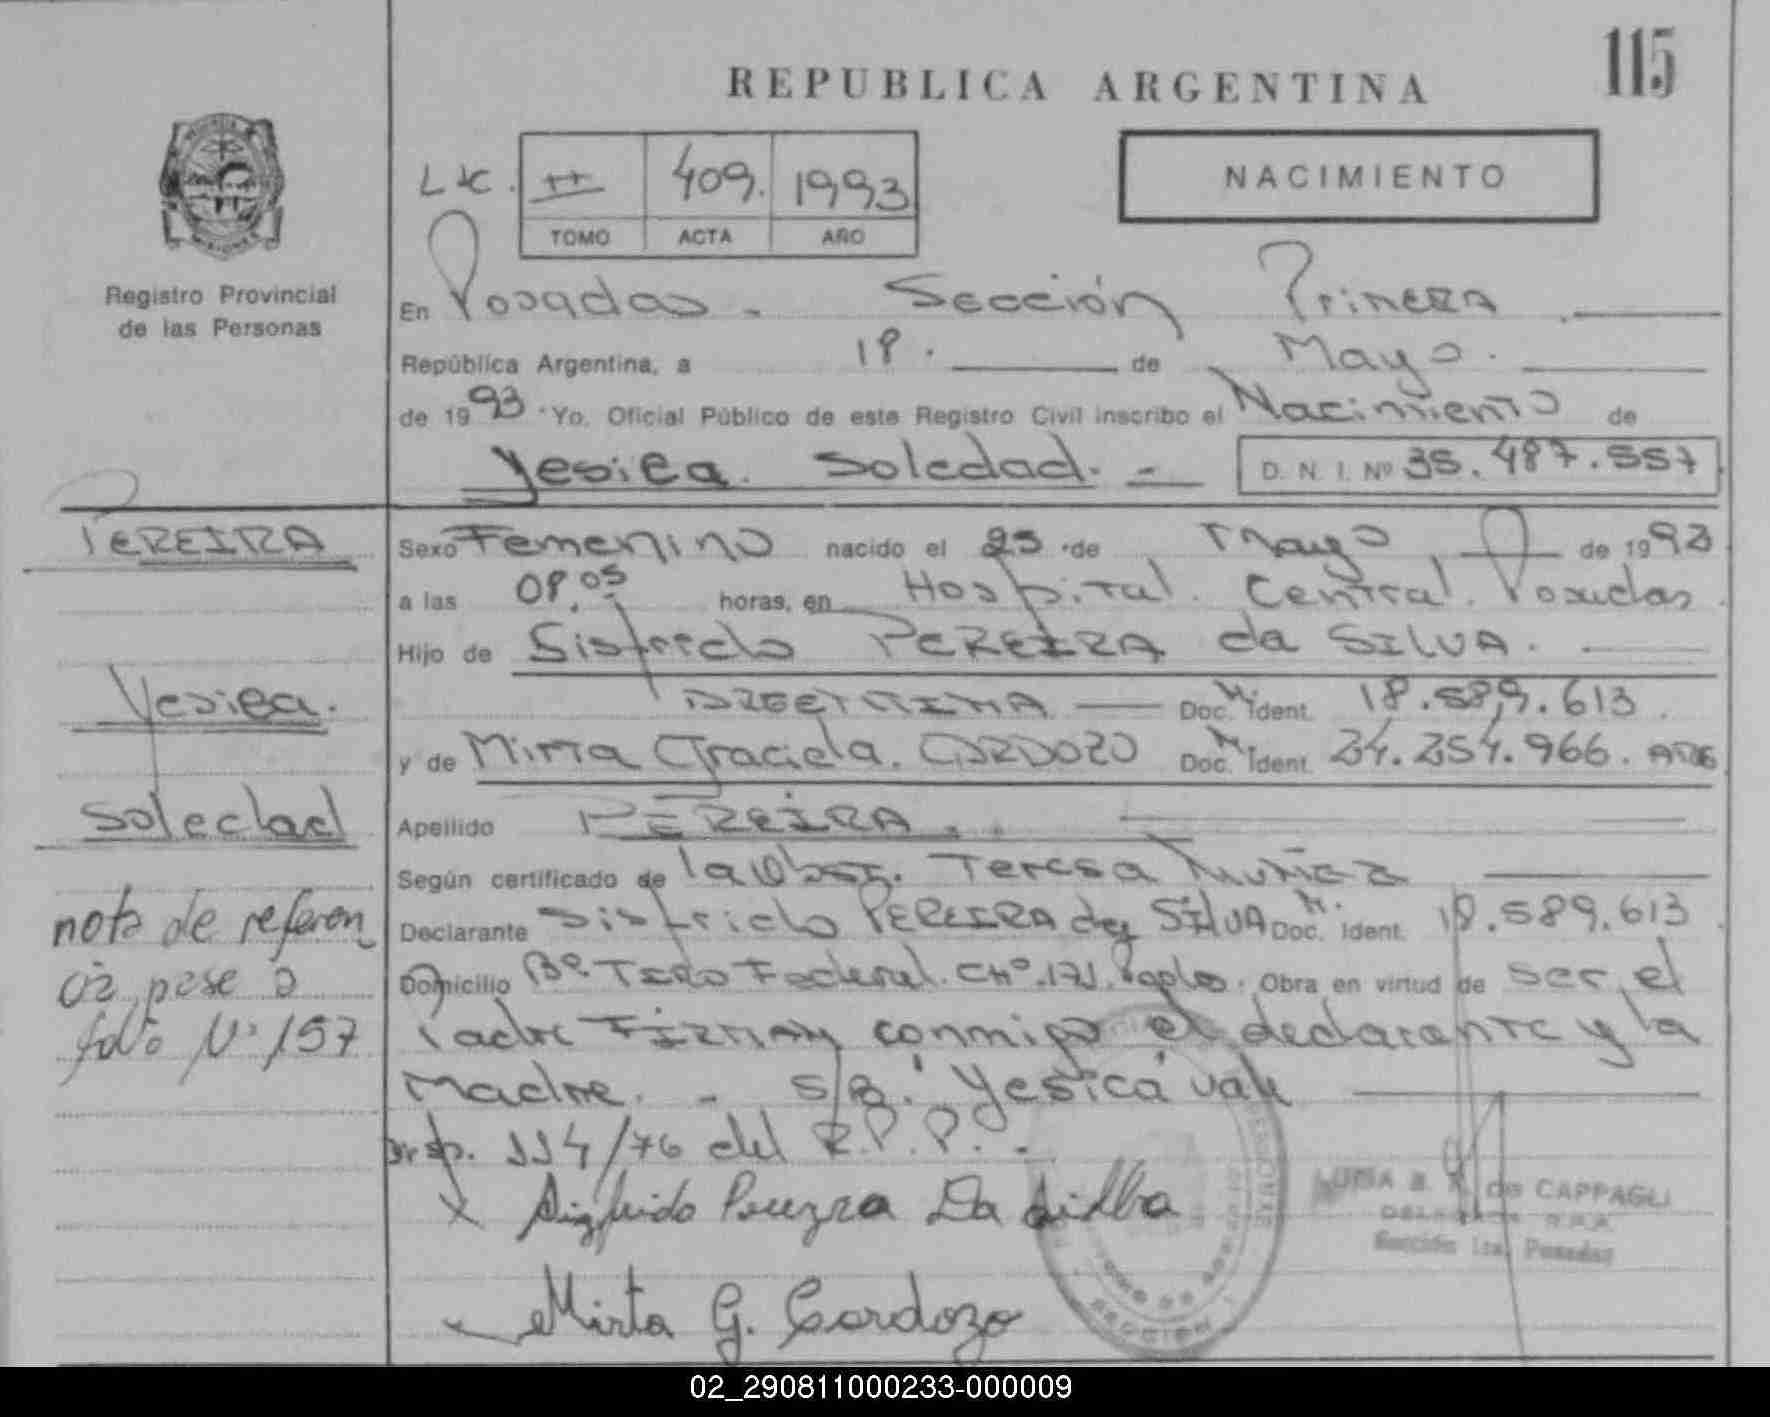 115
REPUBLICA ARGENTINA
NACIMIENTO
II 409. 1993
TOMO ACTA AÑO
Registro Provincial
de las Personas
En Posadas - Sección Primera
República Argentina, a 18. de Mayo.
de 1993 Yo, Oficial Público de este Registro Civil inscribo el Nacimiento de
Yesica Soledad. -
D. N. I. Nº 35.487.557
PEREIRA
Yesica.
Soledad
nota de referen
cia pase a
folio Nº 157
Sexo Femenino nacido el de Mayo de 1993
a las 08,05 horas, en Hospital Central. Posadas
Hijo de Sisfredo PEREIRA da SILVA.
ARGENTINA Doc. M. Ident. 18.589.613
y de Mirta Graciela. CARDOZO Doc. M. Ident. 24.254.966. ARG
Apellido PEREIRA.
Según certificado de la Obst. Teresa
Declarante Sisfrido PEREIRA da SILVA Doc. M. Ident. 18.589.613
Domicilio Bº. Tiro Federal. CHº.171. Obra en virtud de ser el
Padre Firman conmigo el declarante y la
Madre. - s/r. "Yesica" vale
Disp. 114/76 del R.P.P. -
x Sigfrido Da Silba
Mirta G. Cardozo
DE CAPPAGLI
Sección 1ra. Posadas
02_290811000233-000009